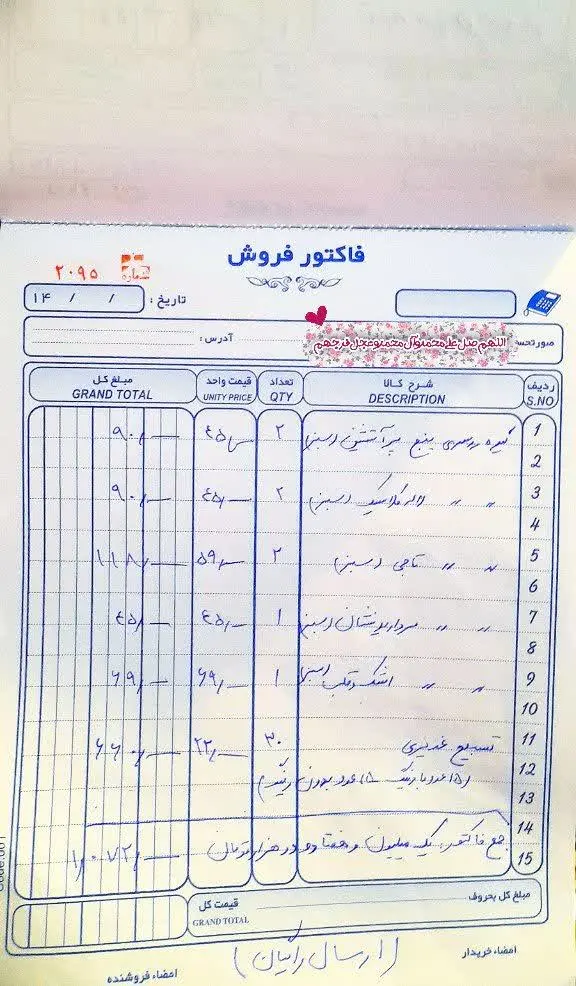 فاکتور فروش
شماره ۲۰۹۵
تاریخ: / / ۱۴
صورتحسـ
اللهم صل علی محمد وآل محمد وعجل فرجهم
آدرس:
ردیف شرح کالا تعداد قیمت واحد مبلغ کل
S.NO DESCRIPTION QTY UNITY PRICE GRAND TOTAL
1 گیره روسری پنج پر آتشین (سبز) ۲ ٤٥/— ۹۰/—
2
3 〃 〃 لاله کلاسیک (سبز) ۲ ٤٥/— ۹۰/—
4
5 〃 〃 تاجی (سبز) ۲ ۵۹/— ۱۱۸/—
6
7 〃 〃 مروارید نشان (سبز) ۱ ٤٥/— ٤٥/—
8
9 〃 〃 اشک و قلب (سبز) ۱ ۶۹/— ۶۹/—
10
11 تسبیح غدیری ۳۰ ۲۲/— ۶۶۰/—
12 (۱۵ عدد با رنگ ۱۵ عدد بدون رنگ)
13
14 جمع فاکتور: یک میلیون و هفتاد و دو هزار تومان ۱/۰۷۲/—
15
مبلغ کل بحروف: قیمت کل
GRAND TOTAL
امضاء خریدار (ارسال رایگان) امضاء فروشنده